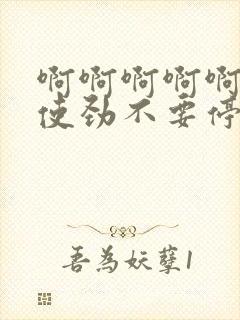 啊啊啊啊啊
使劲不要停
吾为妖孽1